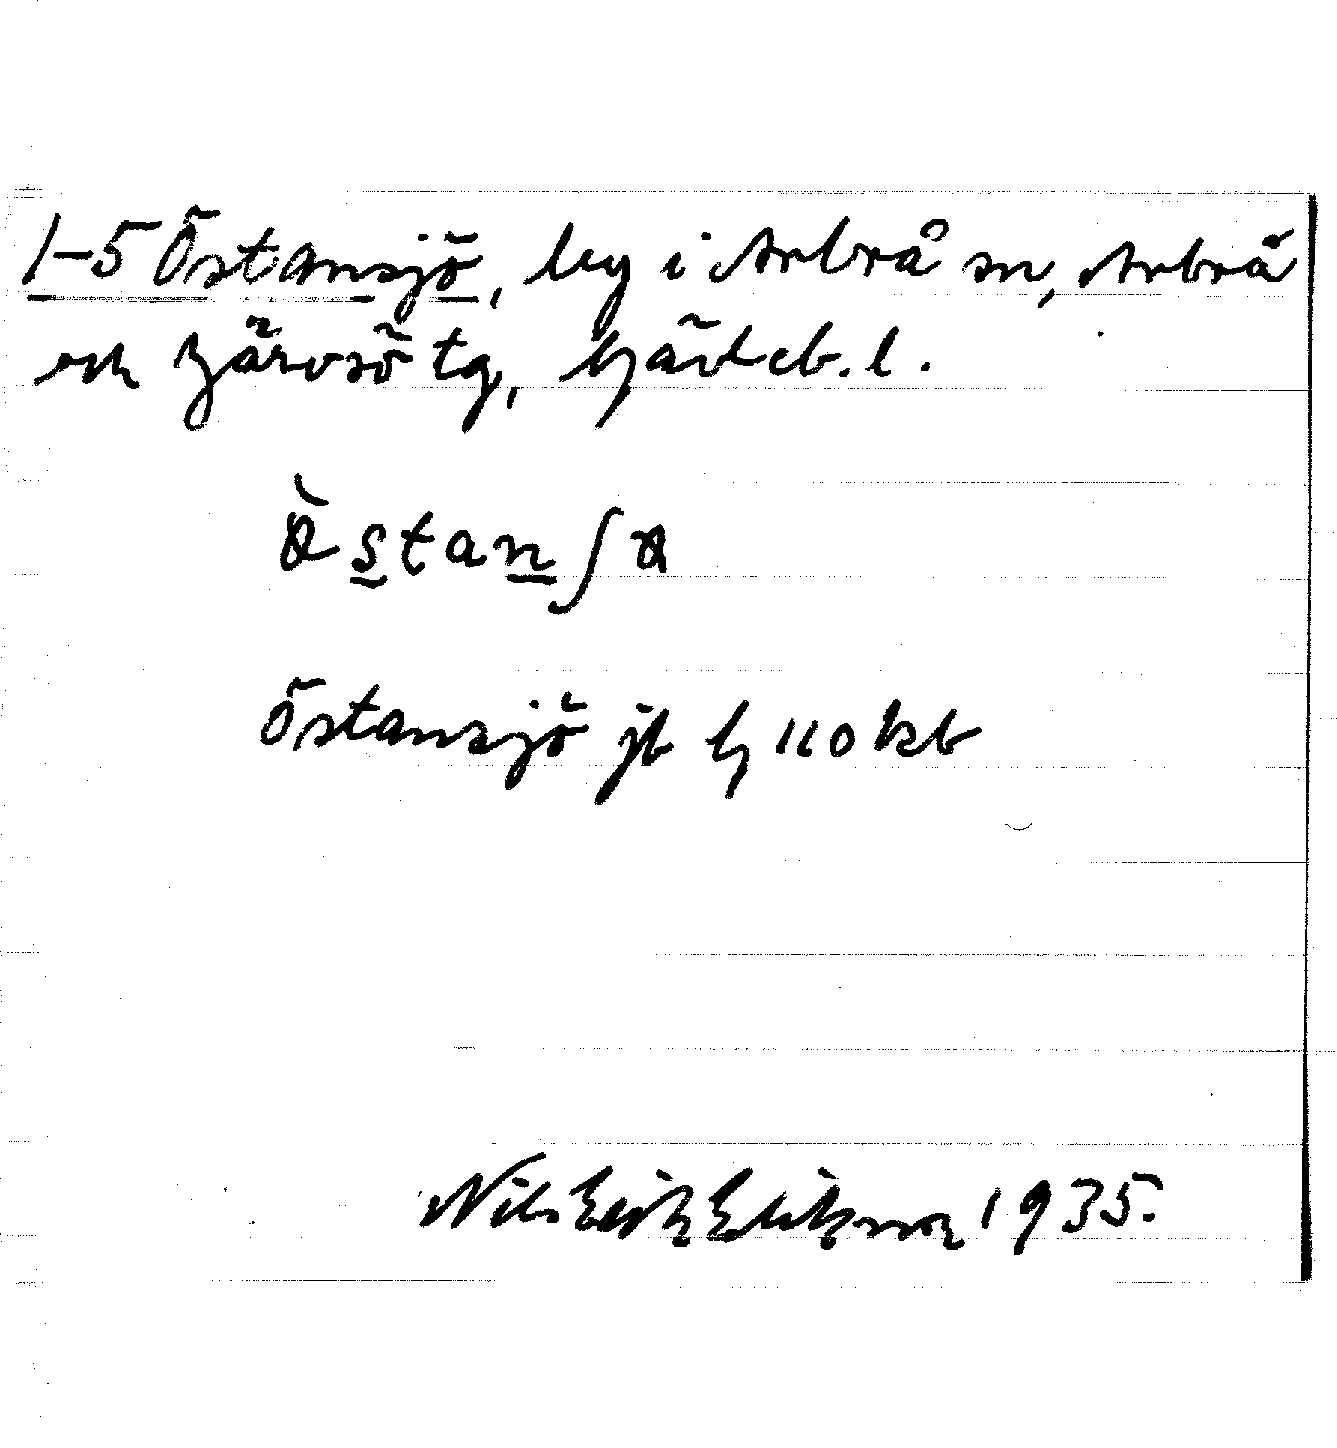 1-5 Östansjö, by i Arbrå sn, Arbrå
och Järvsö tg, Gävleb. l.
östanʃö
Östansjö jb h 110 kb
Nils Erik Eriksson 1935.